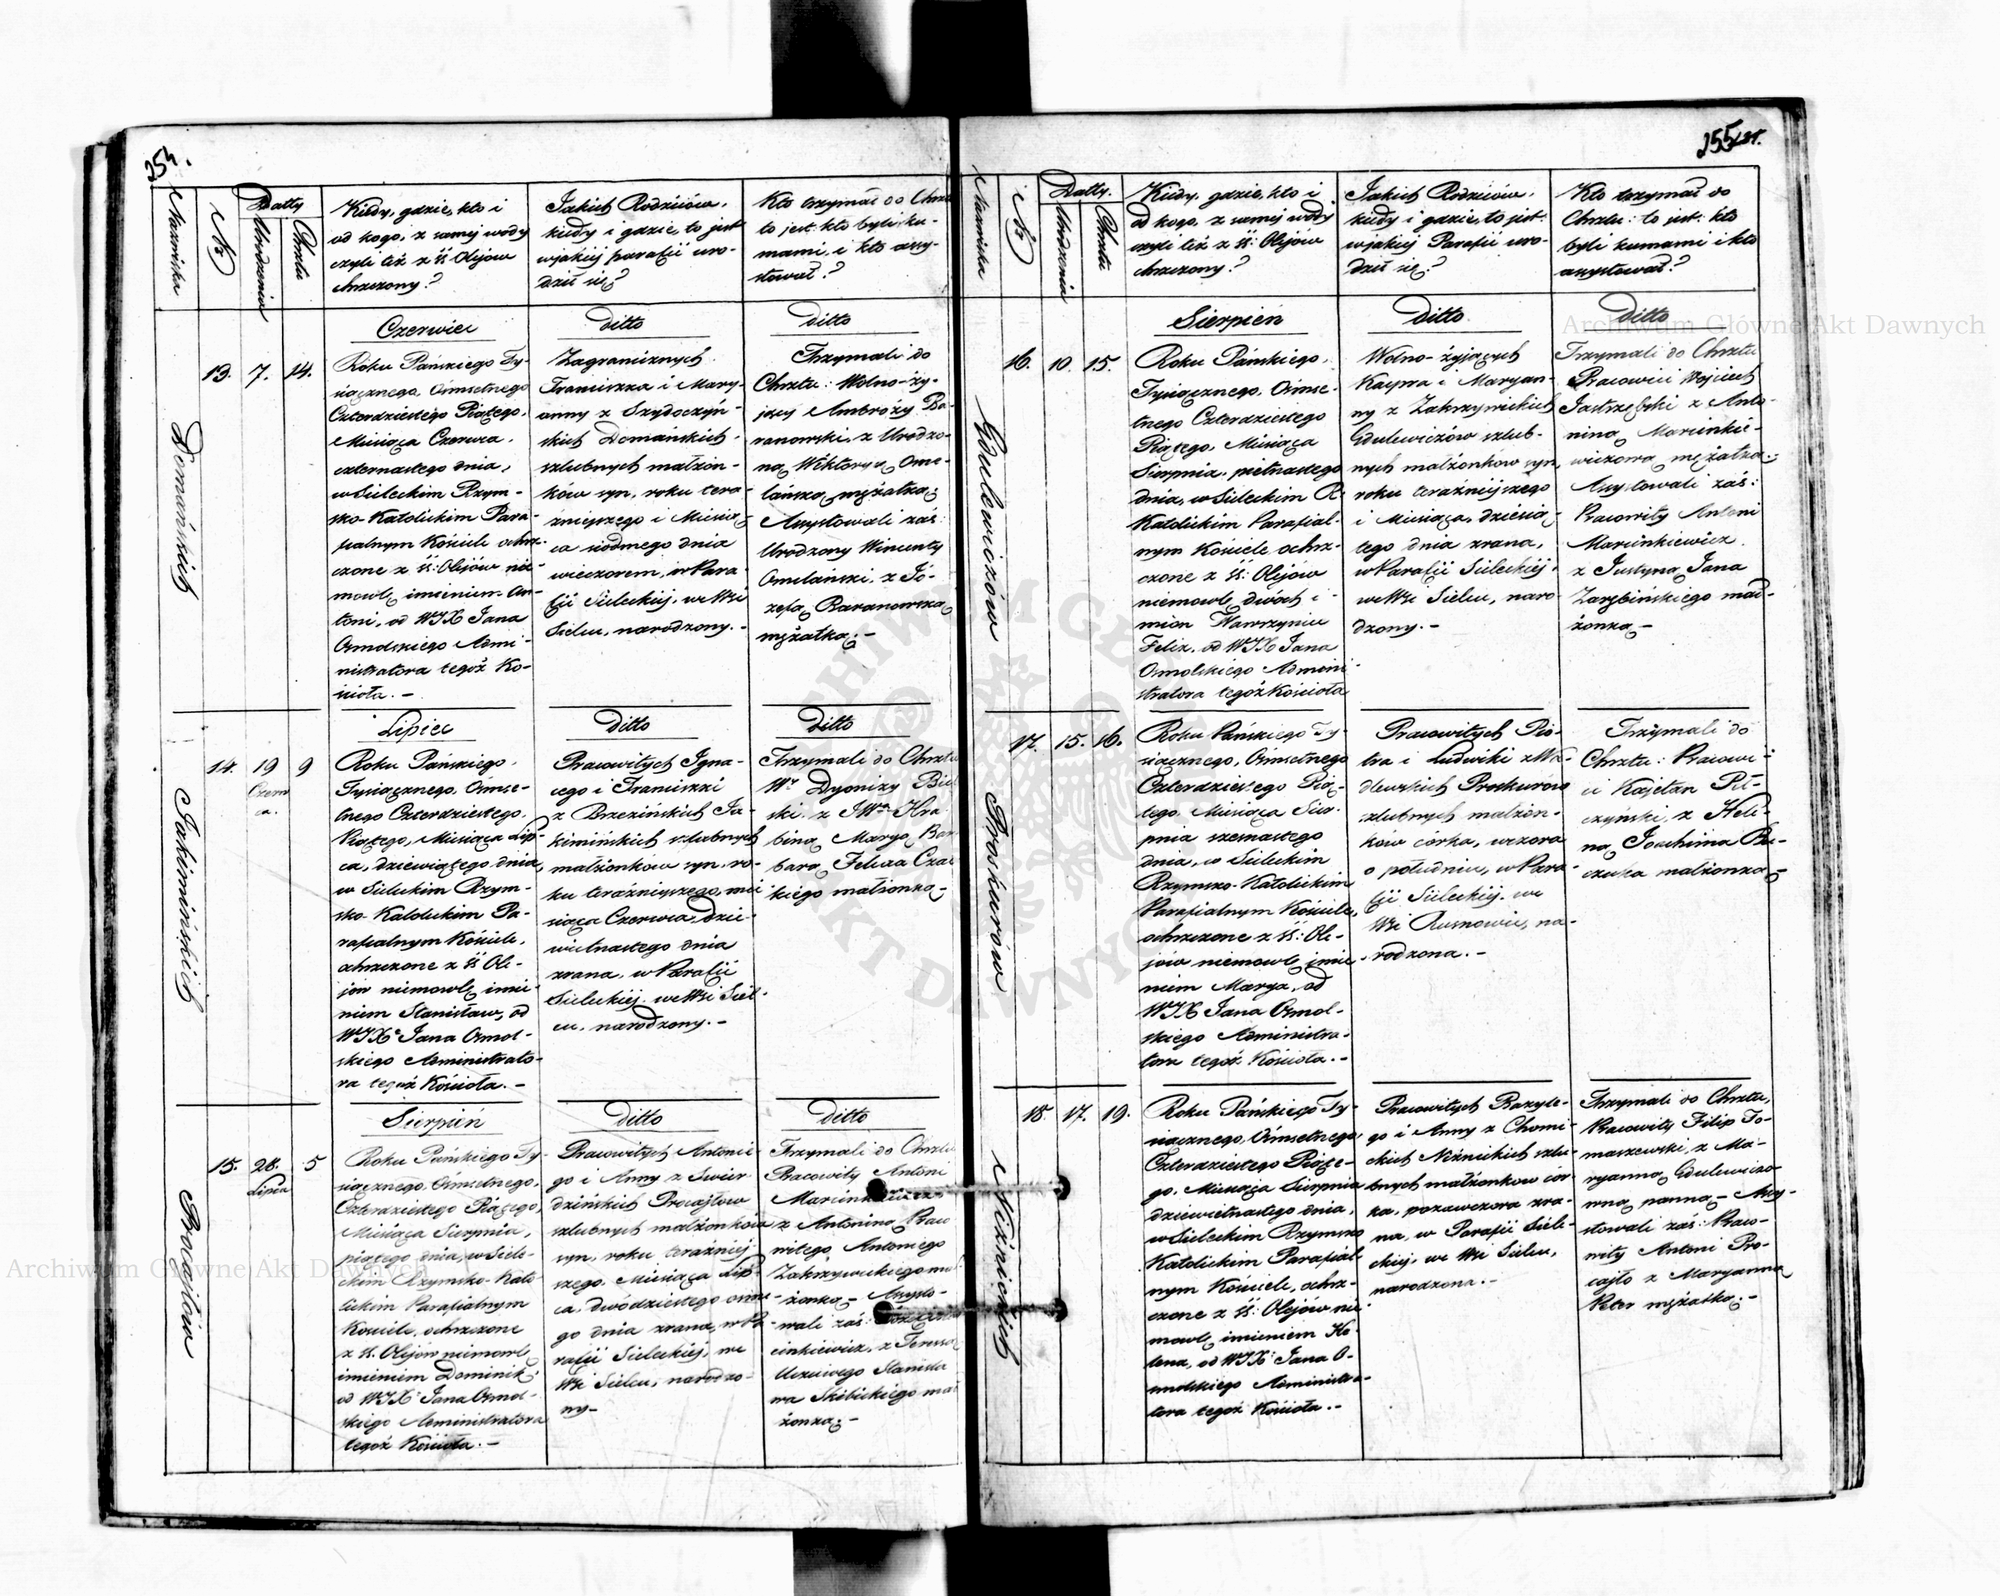 254.
Nazwiska
No
Datty
Urodzenia
Chrztu
Kiedy, gdzie, kto i
od kogo, z samej wody
czyli też z SS: Olejów
chrzczony?
Jakich Rodziców,
kiedy i gdzie, to jest
w jakiej parafii uro-
dził się?
Kto trzymał do Chrztu
to jest: kto byli ku-
mami, i kto assy-
stował?
Czerwiec
ditto
ditto
Domańskich
13. 7. 14.
Roku Pańskiego Ty-
siącznego, Ośmsetnego
Czterdziestego Piątego,
Miesiąca Czerwca,
czternastego dnia,
w Sieleckim Rzym-
sko-Katolickim Para-
fialnym Kościele ochrz-
czone z SS: Olejów nie-
mowlę imieniem An-
toni, od WJX Jana
Osmolskiego Admi-
nistratora tegoż Ko-
ścioła. -
Zagranicznych
Franciszka i Mary-
anny z Szydoczyń-
skich Domańskich,
szlubnych małżon-
ków syn, roku tera-
źniejszego i Miesią-
ca siódmego dnia
wieczorem, w Para-
fii Sieleckiej, we Wsi
Sielcu, narodzony. -
Trzymali do
Chrztu: Wolno-ży-
jący Ambroży Ba-
ranowski, z Urodzo-
ną Wiktoryą Ome-
lańską mężatką;
Assystowali zaś:
Urodzony Wincenty
Omelański, z Jó-
zefą Baranowską
mężatką; -
Lipiec
ditto
ditto
Jakimińskich
14. 19 9
Czerw
ca.
Roku Pańskiego,
Tysiącznego, Ośmse-
tnego Czterdziestego,
Piątego, Miesiąca Lip-
ca, dziewiątego dnia,
w Sieleckim Rzym-
sko-Katolickim Pa-
rafialnym Kościele,
ochrzczone z SS Ole-
jów niemowlę imie-
niem Stanisław, od
WJX Jana Osmol-
skiego Administrato-
ra tegoż Kościoła. -
Pracowitych Igna-
cego i Franciszki
z Brzezińskich Ja-
kimińskich szlubnych
małżonków syn, ro-
ku teraźniejszego, mie
siąca Czerwca, dzie-
więtnastego dnia
zrana, w Parafii
Sieleckiej, we Wsi Siel-
cu, narodzony. -
Trzymali do Chrztu
Wy Dyonizy Biel
ski, z JWną Hra
biną Maryą Bar
barą Felixa Czac
kiego małżonką -
Sierpień
ditto
ditto
Procajłów
15. 28. 5
Lipca
Roku Pańskiego Ty-
siącznego, Ośmsetnego,
Czterdziestego Piątego,
Miesiąca Sierpnia,
piątego dnia, w Siele-
ckim Rzymsko-Kato-
lickim Parafialnym
Kościele, ochrzczone
z SS. Olejów niemowlę
imieniem Dominik;
od WJX Jana Osmol-
skiego Administratora
tegoż Kościoła. -
Pracowitych Antonie-
go i Anny z Swier-
dzińskich Procajłów
szlubnych małżonków
syn, roku teraźniej-
szego, Miesiąca Lip-
ca, dwódziestego ósme-
go dnia zrana, w Pa-
rafii Sieleckiej, we
Wsi Sielcu, narodzo-
ny -
Trzymali do Chrztu
Pracowity Antoni
z Antoniną Praco
witego Antoniego
Zakrzywickiego mał
żonką - Assysto-
wali zaś:
cinkiewicz, z Teressą
Uczciwego Stanisła
wa Skibickiego mał
żonką; -
255
Nazwiska
No
Datty.
Urodzenia
Chrztu
Kiedy, gdzie, kto i
od kogo, z samej wody
czyli też z SS: Olejów
chrzczony?
Jakich Rodziców,
kiedy i gdzie, to jest
w jakiej Parafii uro-
dził się?
Kto trzymał do
Chrztu: to jest: kto
byli kumami i kto
assystował?
Sierpień
ditto
ditto
Gdulewiczów
16. 10. 15.
Roku Pańskiego,
Tysiącznego, Ośmse-
tnego Czterdziestego
Piątego, Miesiąca
Sierpnia, piętnastego
dnia, w Sieleckim R-
Katolickim Parafial-
nym Kościele, ochrz-
czone z SS: Olejów
niemowlę dwóch i-
mion Wawrzyniec
Felix, od WJX Jana
Osmolskiego Admini-
stratora tegoż Kościoła
Wolno-żyjących
Kacpra i Maryan-
ny z Zakrzywickich
Gdulewiczów szlub-
nych małżonków syn,
roku teraźniejszego
i Miesiąca, dziesią-
tego dnia zrana,
w Parafii Sieleckiej,
we Wsi Sielcu, naro-
dzony. -
Trzymali do Chrztu
Pracowici Wojciech
Jastrzębski z Anto-
niną Marcinkie-
wiczową mężatką;
Assystowali zaś:
Pracowity Antoni
Marcinkiewicz
z Justyną Jana
Zarębińskiego mał-
żonką -
Proskurów
17. 15. 16.
Roku Pańskiego Ty-
siącznego, Ośmsetnego
Czterdziestego Pią-
tego, Miesiąca Sier-
pnia szesnastego
dnia, w Sieleckim
Rzymsko-Katolickim
Parafialnym Kościele,
ochrzczone z SS: Ole-
jów niemowlę imie-
niem Marya, od
WJX Jana Osmol-
skiego Administra-
tora tegoż Kościoła. -
Pracowitych Pio-
tra i Ludwiki z Wa-
dlewskich Proskurów
szlubnych małżon-
ków córka, wczora
o południu, w Para-
fii Sieleckiej, we
Wsi Rusnowie, na-
rodzona. -
Trzymali do
Chrztu: Pracowi-
ci Kajetan Pil-
czyński, z Heli-
ną Joachima Bu-
czuka małżonką -
Niźnickich
18. 17. 19.
Roku Pańskiego Ty-
siącznego, Ośmsetnego
Czterdziestego Piąte-
go, Miesiąca Sierpnia
dziewiętnastego dnia,
w Sieleckim Rzymsko
Katolickim Parafial-
nym Kościele, ochrz-
czone z SS: Olejów nie-
mowlę imieniem He-
lena, od WJX Jana O-
smolskiego Administra-
tora tegoż Kościoła. -
Pracowitych Bazyle-
go i Anny z Chomi-
ckich Niźnickich szlu-
bnych małżonków cór-
ka, pozawczora zra-
na, w Parafii Siele-
ckiej, we Wsi Sielcu,
narodzona. -
Trzymali do Chrztu,
Pracowity Filip To-
maszewski, z Ma-
ryanną Gdulewiczo-
wną panną - Assy-
stowali zaś: Praco-
wity Antoni Pro-
cajło z Maryanną
Peter mężatką. -
Archiwum Główne Akt Dawnych
Archiwum Główne Akt Dawnych